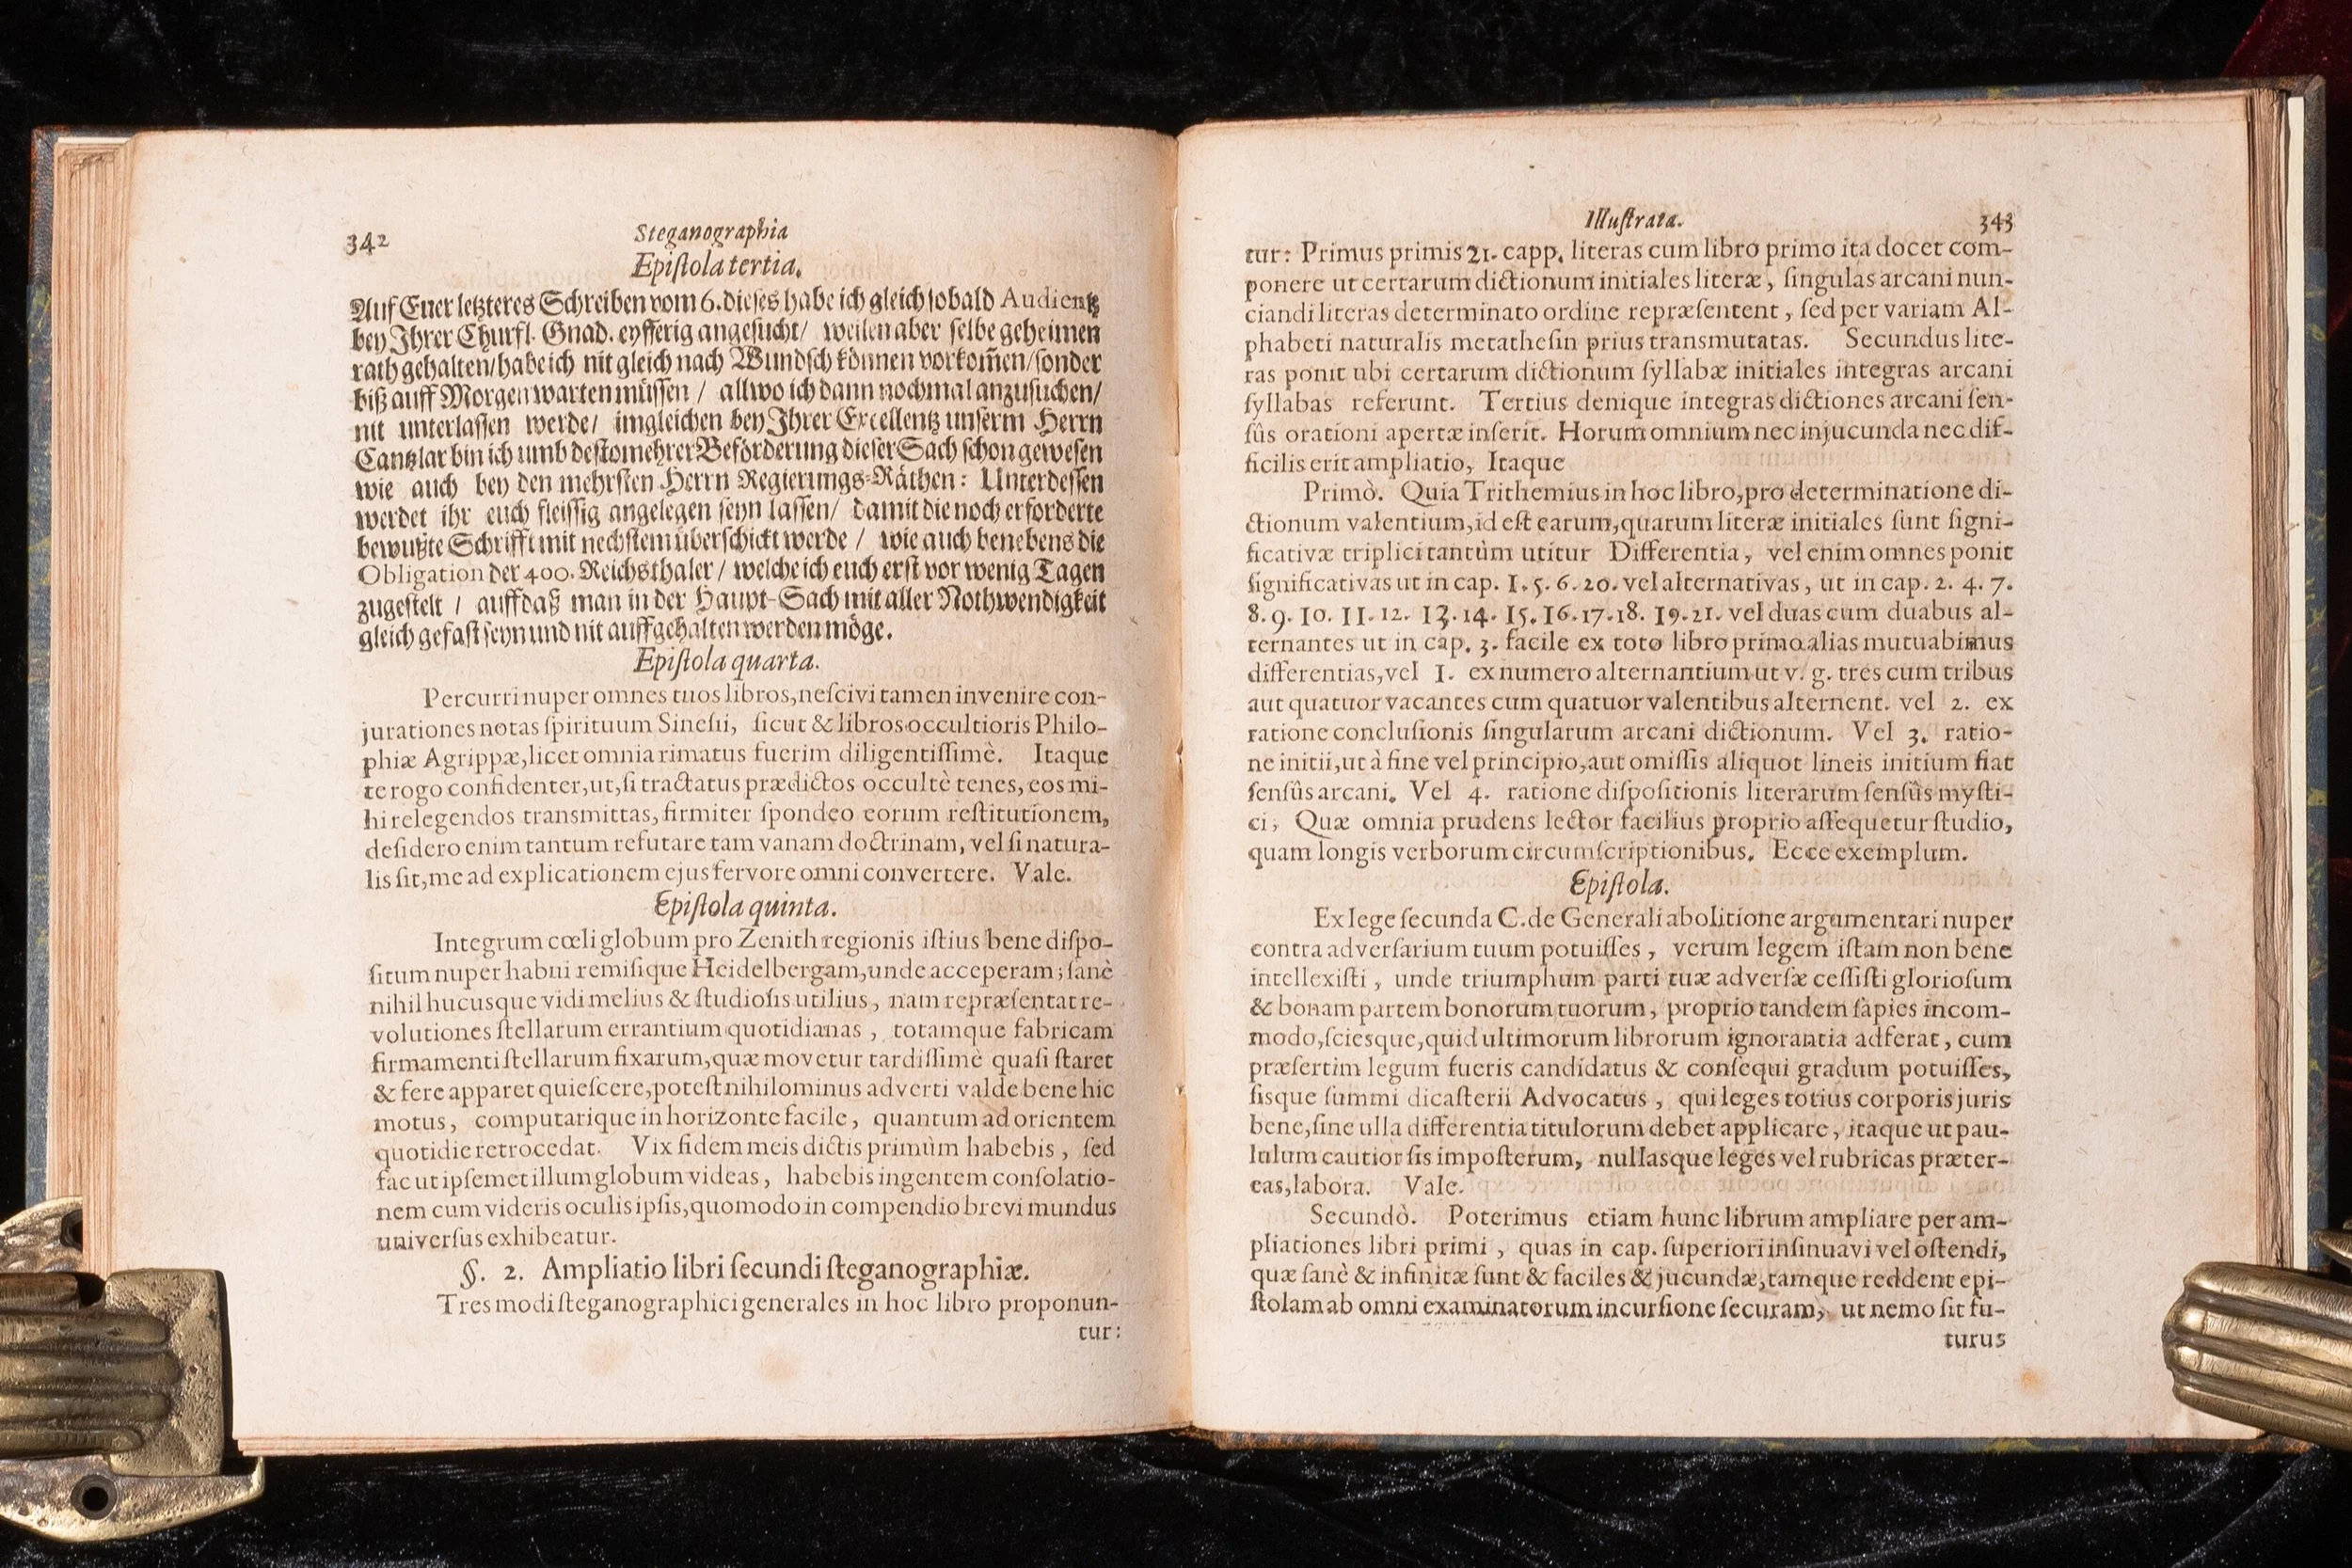 342
Steganographia
Epiſtola tertia.
Auf Euer letzteres Schreiben vom 6. dieſes habe ich gleich ſobald Audientz
bey Ihrer Churfl. Gnad. eyfferig angeſucht/ weilen aber ſelbe geheimen
rath gehalten/habe ich nit gleich nach Wundſch können vorkom̃en/ſonder
biß auff Morgen warten müſſen / allwo ich dann nochmal anzuſuchen/
nit unterlaſſen werde/ imgleichen bey Ihrer Excellentz unſerm Herrn
Cantzlar bin ich umb deſtomehrer Beförderung dieſer Sach ſchon geweſen
wie auch bey den mehrſten Herrn Regierungs-Räthen: Unterdeſſen
werdet ihr euch fleiſſig angelegen ſeyn laſſen/ damit die noch erforderte
bewußte Schrifft mit nechſtem überſchickt werde / wie auch benebens die
Obligation der 400. Reichsthaler / welche ich euch erſt vor wenig Tagen
zugeſtelt / auffdaß man in der Haupt-Sach mit aller Nothwendigkeit
gleich gefaſt ſeyn und nit auffgehalten werden möge.
Epiſtola quarta.
Percurri nuper omnes tuos libros, neſcivi tamen invenire con-
jurationes notas ſpirituum Sineſii, ſicut & libros occultioris Philo-
phiæ Agrippæ, licet omnia rimatus fuerim diligentiſſimè. Itaque
te rogo confidenter, ut, ſi tractatus prædictos occultè tenes, eos mi-
hi relegendos transmittas, firmiter ſpondeo eorum reſtitutionem,
deſidero enim tantum refutare tam vanam doctrinam, vel ſi natura-
lis ſit, me ad explicationem ejus fervore omni convertere. Vale.
Epiſtola quinta.
Integrum cœli globum pro Zenith regionis iſtius bene diſpo-
ſitum nuper habui remiſique Heidelbergam, unde acceperam; ſanè
nihil hucusque vidi melius & ſtudioſis utilius, nam repræſentat re-
volutiones ſtellarum errantium quotidianas, totamque fabricam
firmamenti ſtellarum fixarum, quæ movetur tardiſſimè quaſi ſtaret
& fere apparet quieſcere, poteſt nihilominus adverti valde bene hic
motus, computarique in horizonte facile, quantum ad orientem
quotidie retrocedat. Vix fidem meis dictis primùm habebis, ſed
fac ut ipſemet illum globum videas, habebis ingentem conſolatio-
nem cum videris oculis ipſis, quomodo in compendio brevi mundus
univerſus exhibeatur.
§. 2. Ampliatio libri ſecundi ſteganographiæ.
Tres modi ſteganographici generales in hoc libro proponun-
tur:
Illuſtrata.
343
tur: Primus primis 21. capp. literas cum libro primo ita docet com-
ponere ut certarum dictionum initiales literæ, ſingulas arcani nun-
ciandi literas determinato ordine repræſentent, ſed per variam Al-
phabeti naturalis metatheſin prius transmutatas. Secundus lite-
ras ponit ubi certarum dictionum ſyllabæ initiales integras arcani
ſyllabas referunt. Tertius denique integras dictiones arcani ſen-
ſûs orationi apertæ inſerit. Horum omnium nec injucunda nec dif-
ficilis erit ampliatio, Itaque
Primò. Quia Trithemius in hoc libro, pro determinatione di-
ctionum valentium, id eſt earum, quarum literæ initiales ſunt ſigni-
ficativæ triplici tantùm utitur Differentia, vel enim omnes ponit
ſignificativas ut in cap. 1. 5. 6. 20. vel alternativas, ut in cap. 2. 4. 7.
8. 9. 10. 11. 12. 13. 14. 15. 16. 17. 18. 19. 21. vel duas cum duabus al-
ternantes ut in cap. 3. facile ex toto libro primo alias mutuabimus
differentias, vel 1. ex numero alternantium ut v. g. tres cum tribus
aut quatuor vacantes cum quatuor valentibus alternent. vel 2. ex
ratione concluſionis ſingularum arcani dictionum. Vel 3. ratio-
ne initii, ut à fine vel principio, aut omiſſis aliquot lineis initium fiat
ſenſûs arcani. Vel 4. ratione diſpoſitionis literarum ſenſûs myſti-
ci, Quæ omnia prudens lector facilius proprio aſſequetur ſtudio,
quam longis verborum circumſcriptionibus. Ecce exemplum.
Epiſtola.
Ex lege ſecunda C. de Generali abolitione argumentari nuper
contra adverſarium tuum potuiſſes, verum legem iſtam non bene
intellexiſti, unde triumphum parti tuæ adverſæ ceſſiſti glorioſum
& bonam partem bonorum tuorum, proprio tandem ſapies incom-
modo, ſciesque, quid ultimorum librorum ignorantia adferat, cum
præſertim legum fueris candidatus & conſequi gradum potuiſſes,
ſisque ſummi dicaſterii Advocatus, qui leges totius corporis juris
bene, ſine ulla differentia titulorum debet applicare, itaque ut pau-
lulum cautior ſis impoſterum, nullasque leges vel rubricas præter-
eas, labora. Vale.
Secundò. Poterimus etiam hunc librum ampliare per am-
pliationes libri primi, quas in cap. ſuperiori inſinuavi vel oſtendi,
quæ ſanè & infinitæ ſunt & faciles & jucundæ, tamque reddent epi-
ſtolam ab omni examinatorum incurſione ſecuram, ut nemo ſit fu-
turus